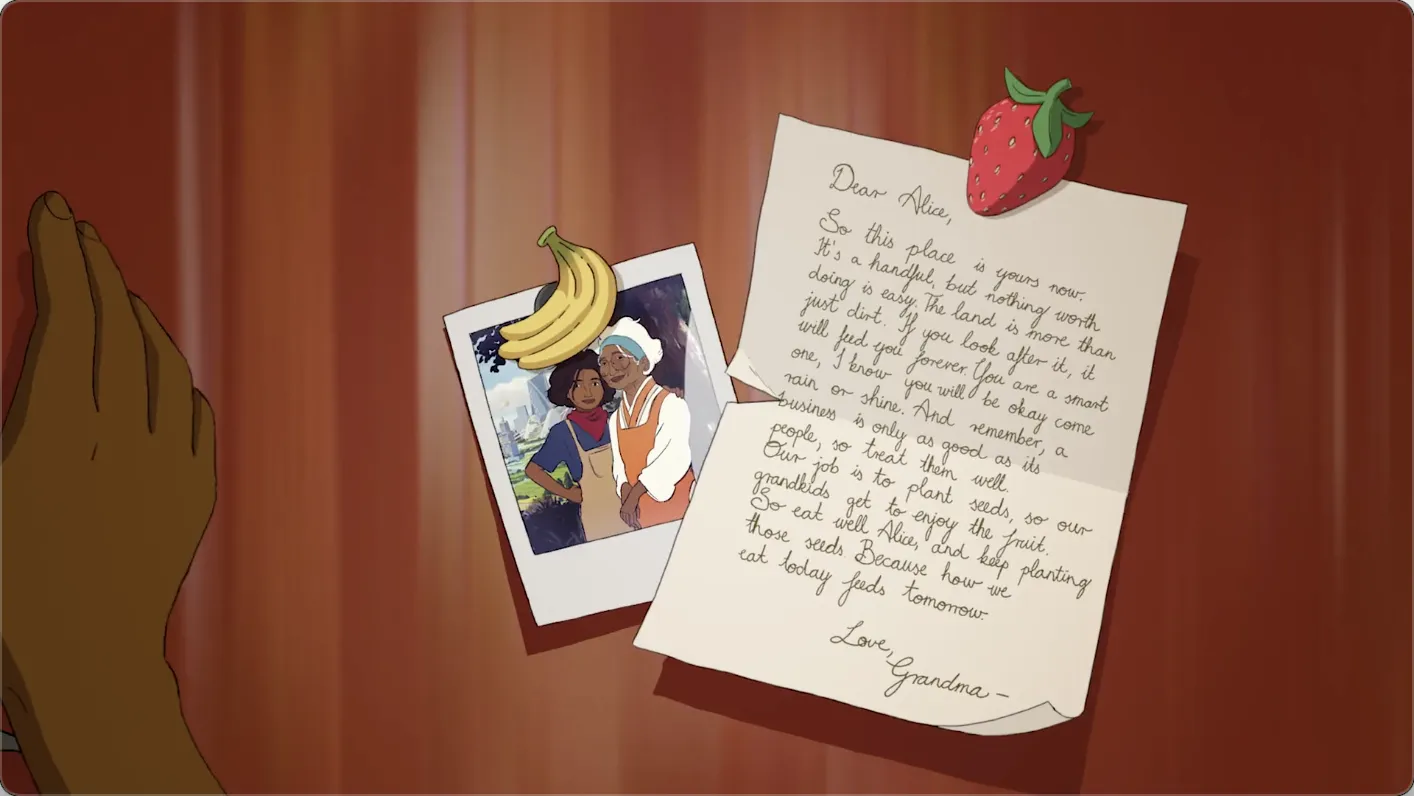 Dear Alice,
So this place is yours now.
It's a handful, but nothing worth
doing is easy. The land is more than
just dirt. If you look after it, it
will feed you forever. You are a smart
one, I know you will be okay come
rain or shine. And remember, a
business is only as good as its
people, so treat them well.
Our job is to plant seeds, so our
grandkids get to enjoy the fruit.
So eat well Alice, and keep planting
those seeds Because how we
eat today feeds tomorrow.
Love,
Grandma -